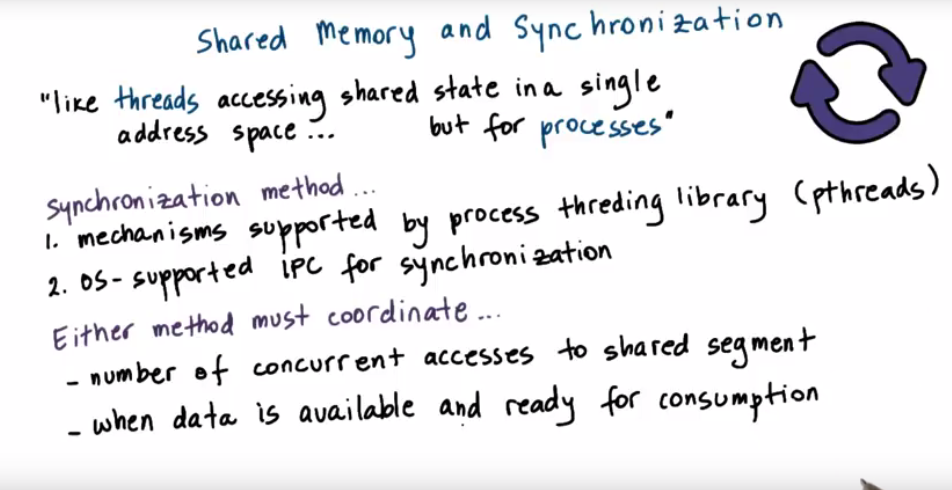 Shared Memory and Synchronization
"like threads accessing shared state in a single
address space ... but for processes"
Synchronization method ...
1. mechanisms supported by process threding library (pthreads)
2. OS-supported IPC for synchronization
Either method must coordinate ...
- number of concurrent accesses to shared segment
- when data is available and ready for consumption